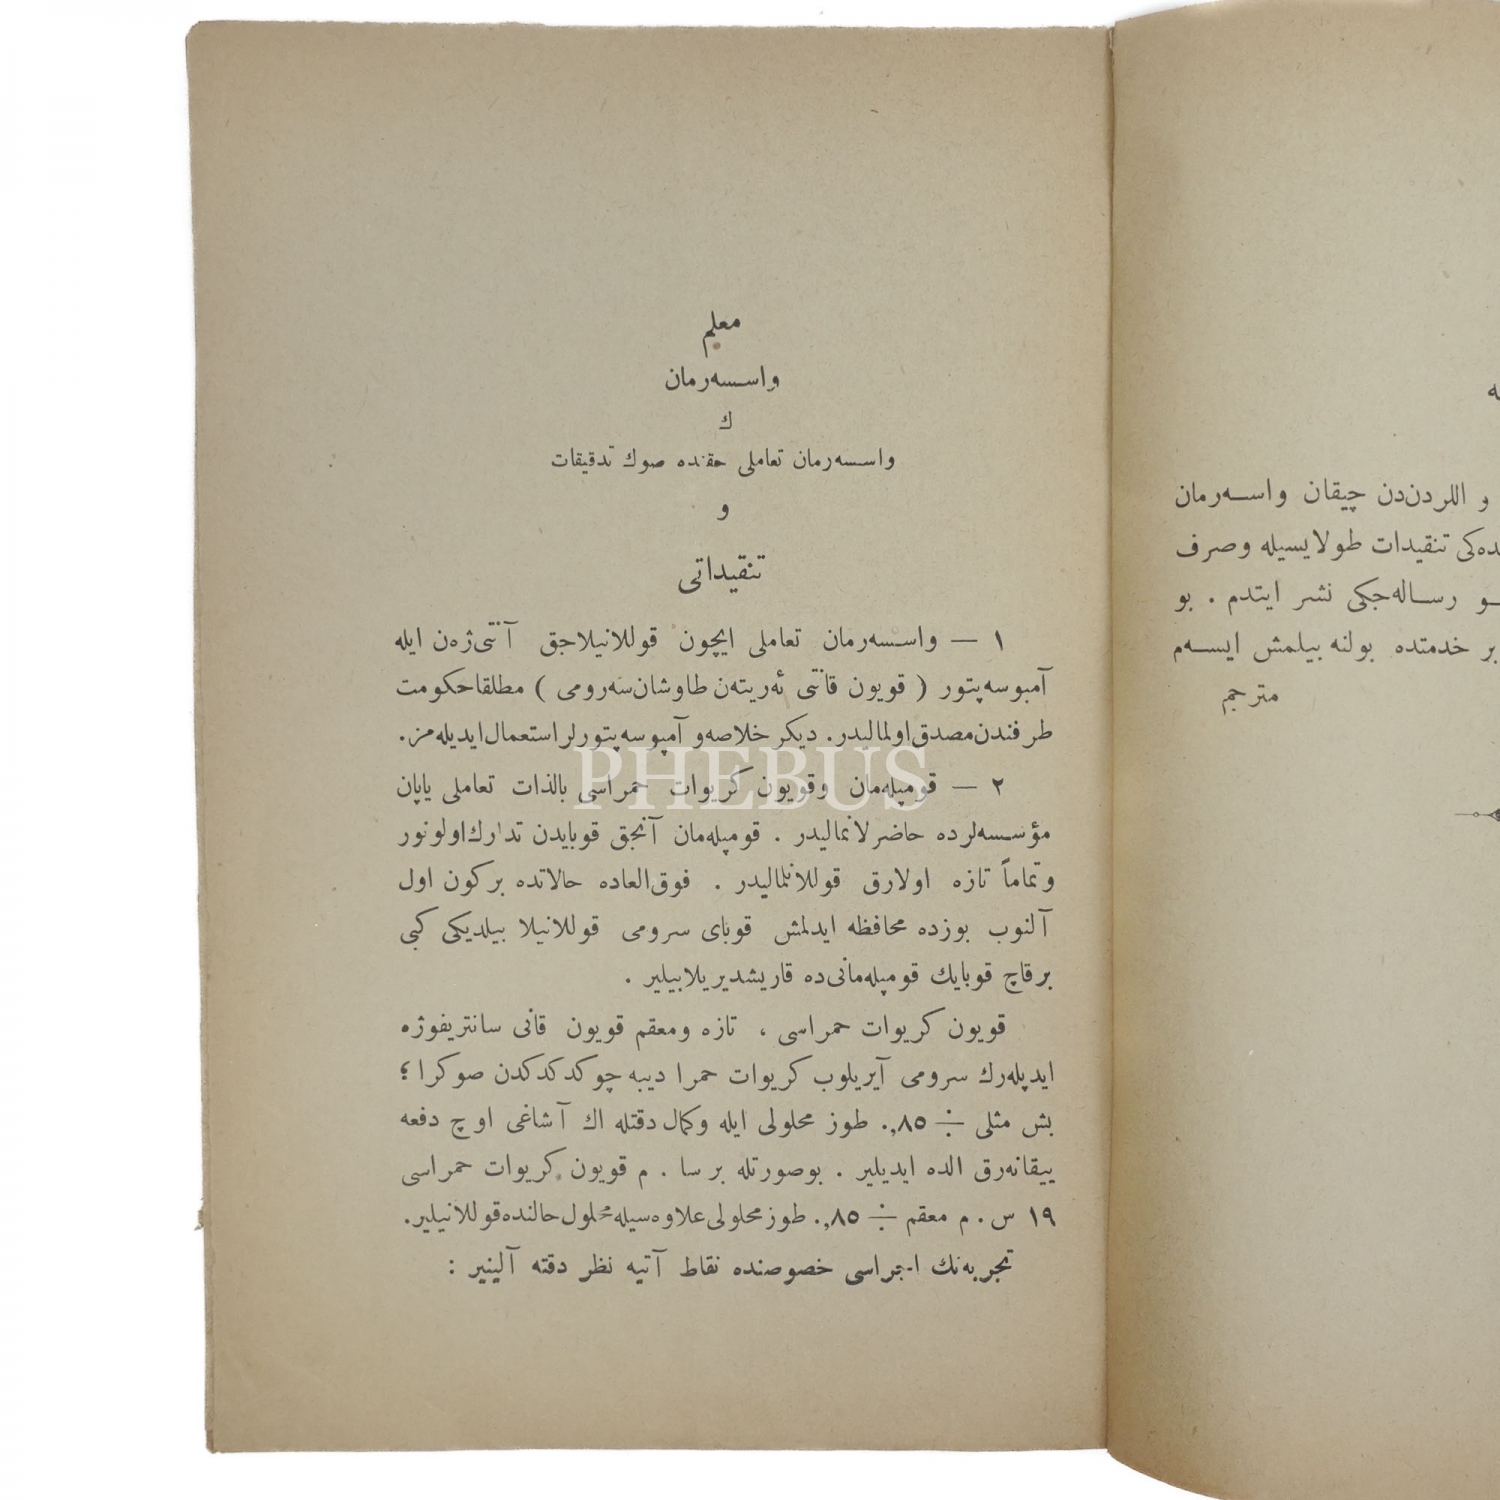 معلم
واسسه‌رمان
ك
واسسه‌رمان تعاملی حقنده صوك تدقیقات
و
تنقیداتی
۱ — واسسه‌رمان تعاملی ایچون قوللانیلاجق آنتی‌ژه‌ن ایله
آمبوسه‌پتور ( قویون قانتی ئه‌ریته‌ن طاوشان‌سه‌رومی ) مطلقاحكومت
طرفندن‌مصدق‌اولمالیدر. دیكر خلاصه‌و آمپوسه‌پتورلر‌استعمال‌ایدیله‌مز.
۲ — قومپله‌مان وقویون كریوات حمراسی بالذات تعاملی یاپان
مؤسسه‌لرده حاضرلانمالیدر . قومپله‌مان آنجق قوبایدن تدارك‌اولونور
وتماماً تازه اولارق قوللانلمالیدر . فوق‌العاده حالاتده بركون اول
آلنوب بوزده محافظه ایدلمش قوبای سرومی قوللانیلا بیلدیكی كبی
برقاچ قوبایك قومپله‌مانی‌ده قاریشدیریلابیلیر .
قویون كریوات حمراسی ، تازه ومعقم قویون قانی سانتریفوژه
ایدیله‌رك سرومی آیریلوب كریوات حمرا دیبه چوكدكدكدن صوكرا ؛
بش مثلی ÷ ۸۵,۰ طوز محلولی ایله وكمال دقتله اك آشاغی اوچ دفعه
ییقانه‌رق الده ایدیلیر . بوصورتله بر سا . م قویون كریوات حمراسی
۱۹ س . م معقم ÷ ۸۵,۰ طوز محلولی علاوه‌سیله محلول حالنده قوللانیلیر.
تجربه‌نك اجراسی خصوصنده نقاط آتیه نظر دقته آلینیر :
و اللردن‌دن چیقان واسـه‌رمان
ده‌كی تنقیدات طولایسیله وصرف
رسـاله‌جكی نشر ایتدم . بو
بر خدمتده بولنه بیلمش ایسـه‌م
مترجم
PHEBUS